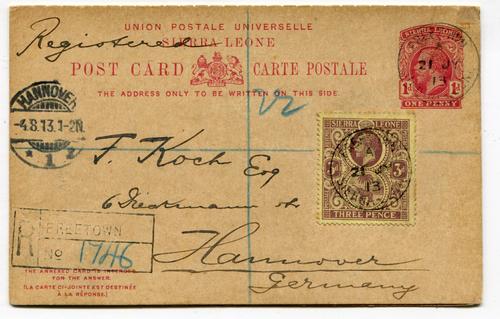 UNION POSTALE UNIVERSELLE
Registered
SIERRA LEONE
POST CARD CARTE POSTALE
THE ADDRESS ONLY TO BE WRITTEN ON THIS SIDE.
SIERRA LEONE
1d 1d
ONE PENNY
21
13
HANNOVER
-4.8.13.1-2N.
* 1 z
F. Koch Esq
6 Dieckmann str
Hannover
Germany
SIERRA LEONE
3d
THREE PENCE
21
13
R FREETOWN
No 1746
THE ANNEXED CARD IS INTENDED
FOR THE ANSWER.
(LA CARTE CI-JOINTE EST DESTINÉE
À LA RÉPONSE.)